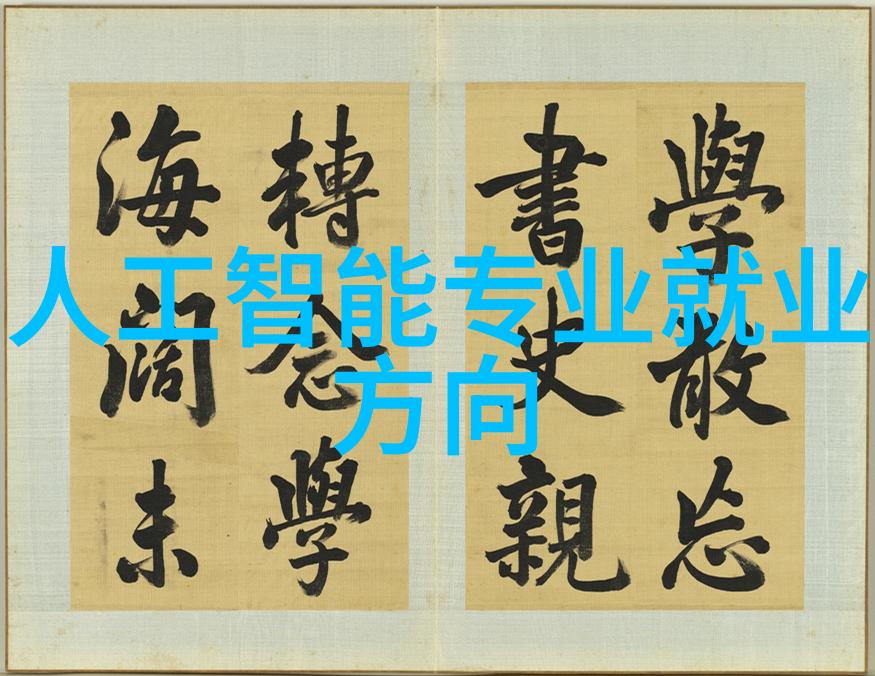 人工智能专业就业
方向
學敢忘
書史親
轉念學
海闊未